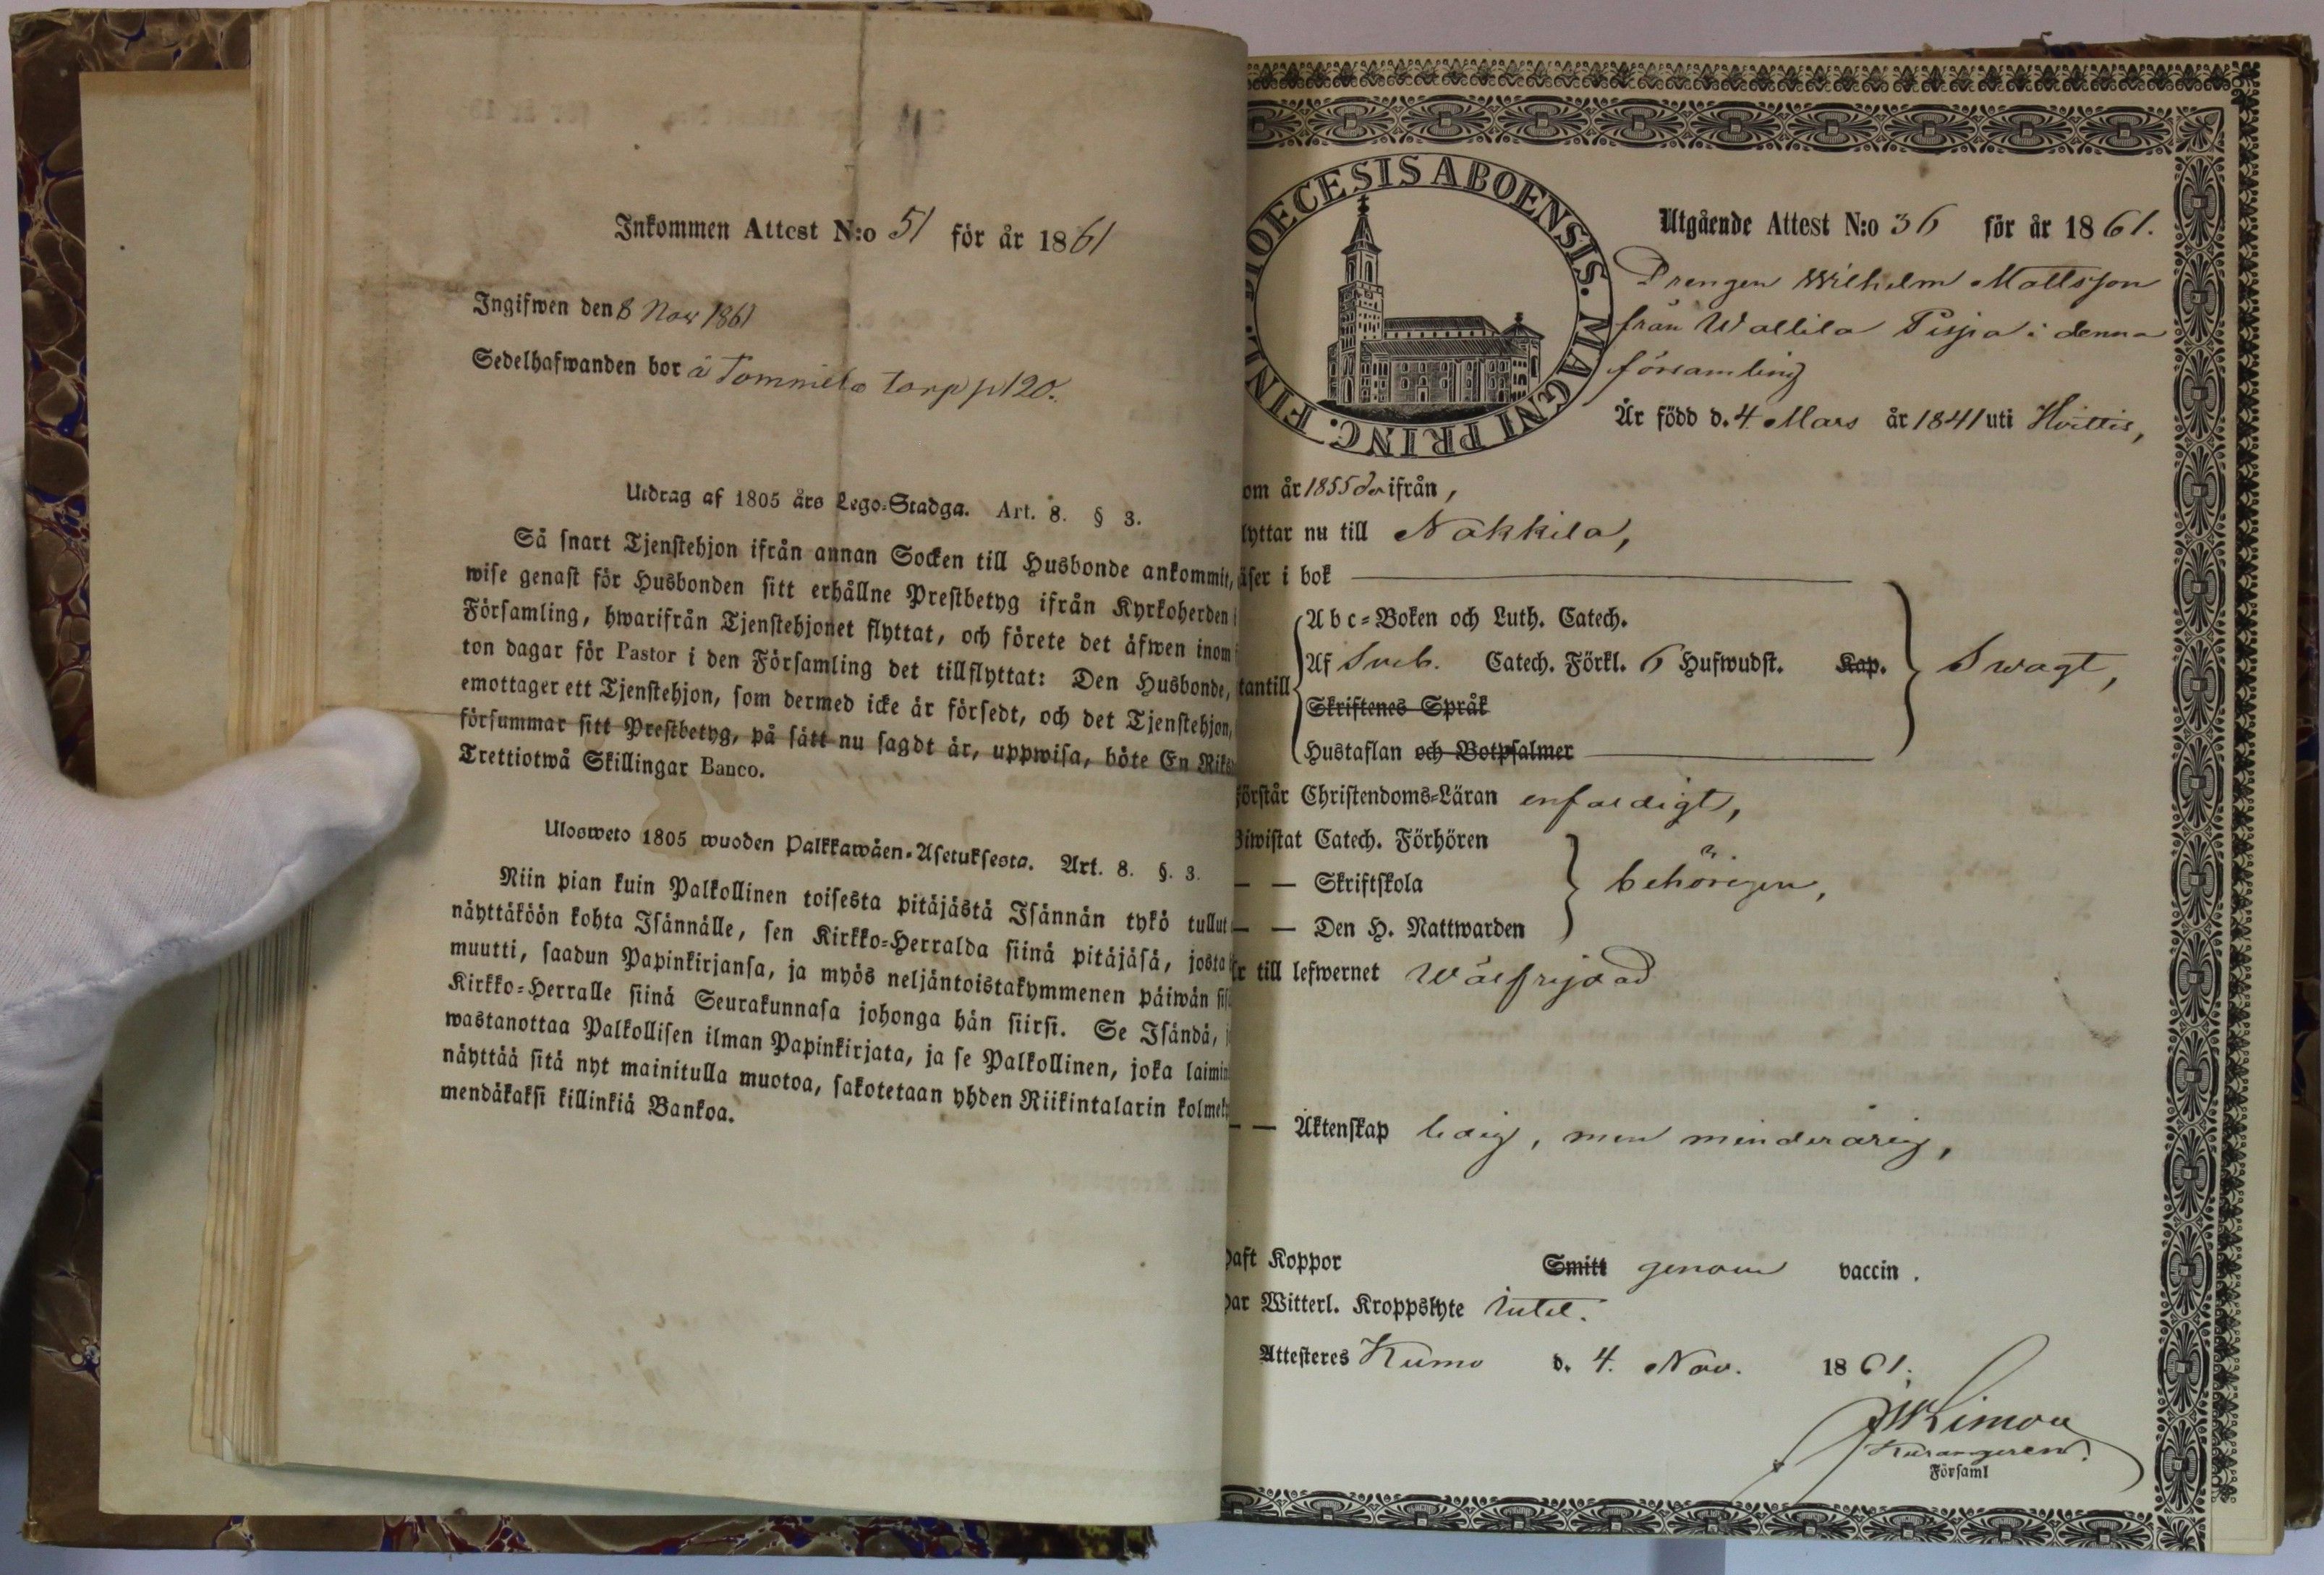 Inkommen Attest N:o 51 för år 1861
Ingifwen den 8 Nov 1861
Sedelhafwanden bor å Tommila torp p 120.
Utdrag af 1805 års Lego-Stadga. Art. 8. § 3.
Så snart Tjenstehjon ifrån annan Socken till Husbonde ankommit,
wise genast för Husbonden sitt erhållne Prestbetyg ifrån Kyrkoherden i
Församling, hwarifrån Tjenstehjonet flyttat, och förete det äfwen inom
ton dagar för Pastor i den Församling det tillflyttat: Den Husbonde,
emottager ett Tjenstehjon, som dermed icke är försedt, och det Tjenstehjon,
försummar sitt Prestbetyg, på sätt nu sagdt är, uppwisa, böte En Riks
Trettiotwå Skillingar Banco.
Ulosweto 1805 wuoden Palkkawäen-Asetuksesta. Art. 8. §. 3.
Niin pian kuin Palkollinen toisesta pitäjästä Isännän tykö tullut
näyttäköön kohta Isännälle, sen Kirkko-Herralda siinä pitäjäsä, josta
muutti, saadun Papinkirjansa, ja myös neljäntoistakymmenen päiwän sis
Kirkko-Herralle siinä Seurakunnasa johonga hän siirsi. Se Isändä,
wastanottaa Palkollisen ilman Papinkirjata, ja se Palkollinen, joka laimin
näyttää sitä nyt mainitulla muotoa, sakotetaan yhden Riikintalarin kolmek
mendäkaksi killinkiä Bankoa.
DIOECESIS ABOENSIS. MAGNI PRINC. FINL.
Utgående Attest N:o 36 för år 1861.
Drengen Wilhelm Mattsson
från Wallila Pispa i denna
församling
Är född d. 4 Mars år 1841 uti Hvittis,
om år 1855 der ifrån,
lyttar nu till Nakkila,
äser i bok
Abc-Boken och Luth. Catech.
Af Sveb. Catech. Förkl. 6 Hufwudst. Kap.
Swagt,
tantill
Skriftenes Språk
Hustaflan och Botpsalmer
förstår Christendoms-Läran enfaldigt,
Biwistat Catech. Förhören
— — Skriftskola
behörigen,
— — Den H. Nattwarden
r till lefwernet Wälfrejdad
— — Äktenskap ledig, men minderårig,
haft Koppor Smitt genom vaccin.
har Witterl. Kroppslyte intet.
Attesteres Kumo d. 4. Nov. 1861.
Församl